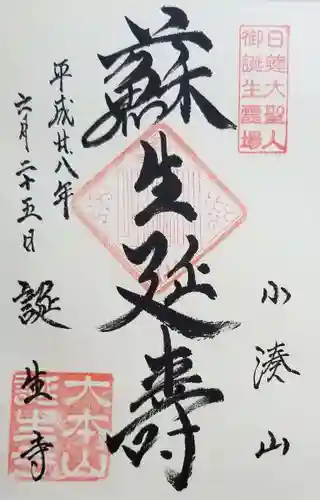 日蓮大聖人
御誕生霊場
小湊山
蘇生延壽
平成廿八年
六月二十五日
誕生寺
大本山
誕生寺